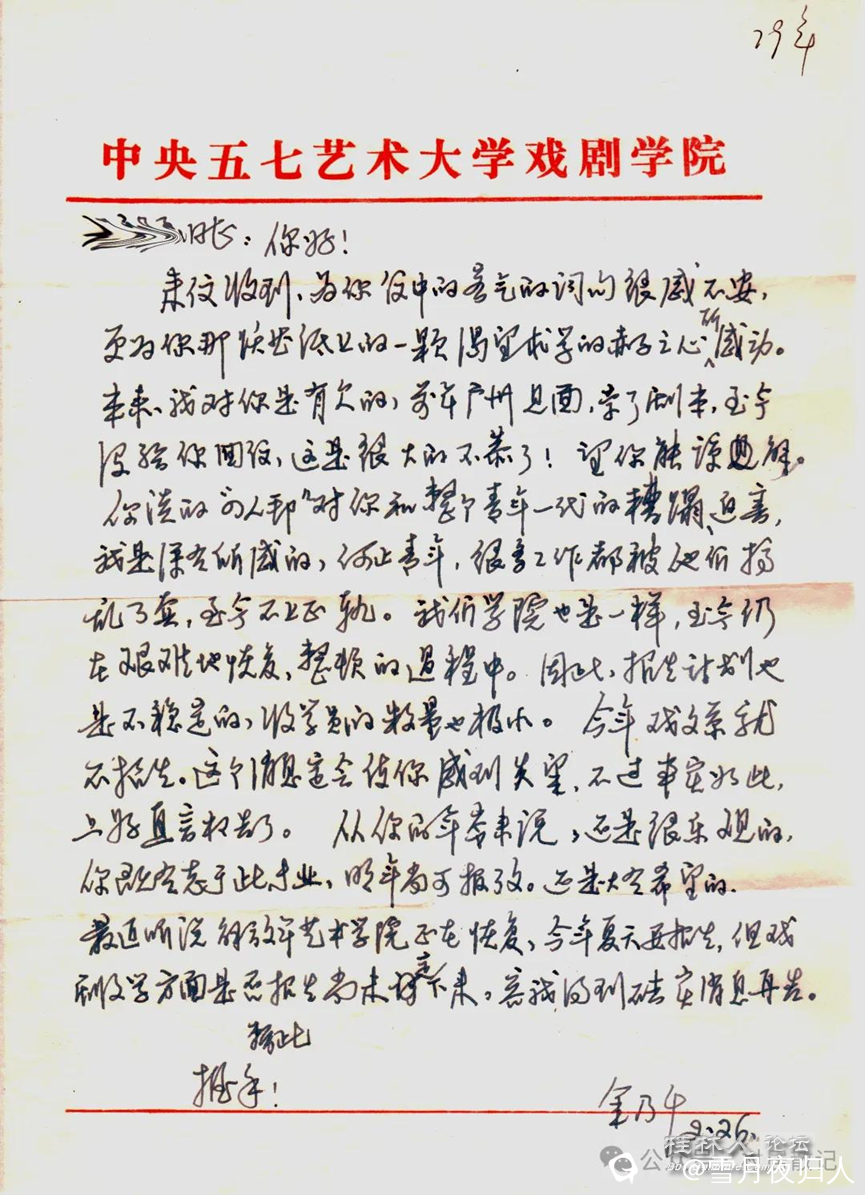 79年
中央五七艺术大学戏剧学院
同志：你好！
来信收到、为你信中的客气的词句很感不安，
更为你那跃然纸上的一颗渴望求学的赤子之心所感动。
本来、我对你是有欠的，前年广州见面，带了剧本，至今
没给你回信，这是很大的不恭了！望你能谅解。
你谈的"四人帮"对你和整个青年一代的糟蹋、迫害，
我是深有所感的，何止青年，很多工作都被他们搞
乱了套，至今不上正轨。我们学院也是一样，至今仍
在艰难地恢复，整顿的过程中。因此，招生计划也
是不稳定的，收学员的数量也极小。今年戏文系就
不招生。这个消息定会使你感到失望，不过事实如此，
只好直言相告了。从你的年龄来说，还是很乐观的，
你既有志于此专业，明年尚可报考。还是大有希望的。
最近听说解放军艺术学院正在恢复，今年夏天要招生，但戏
剧文学方面是否招生尚未定下来，容我得到确实消息再告。
握手！
2.26.
桂林人论坛
@雪月夜归人